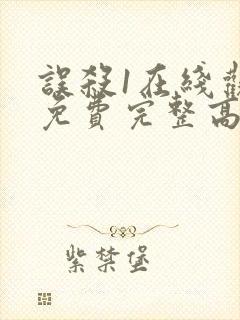 誤殺1在綫觀
免費完整高
紫禁堡